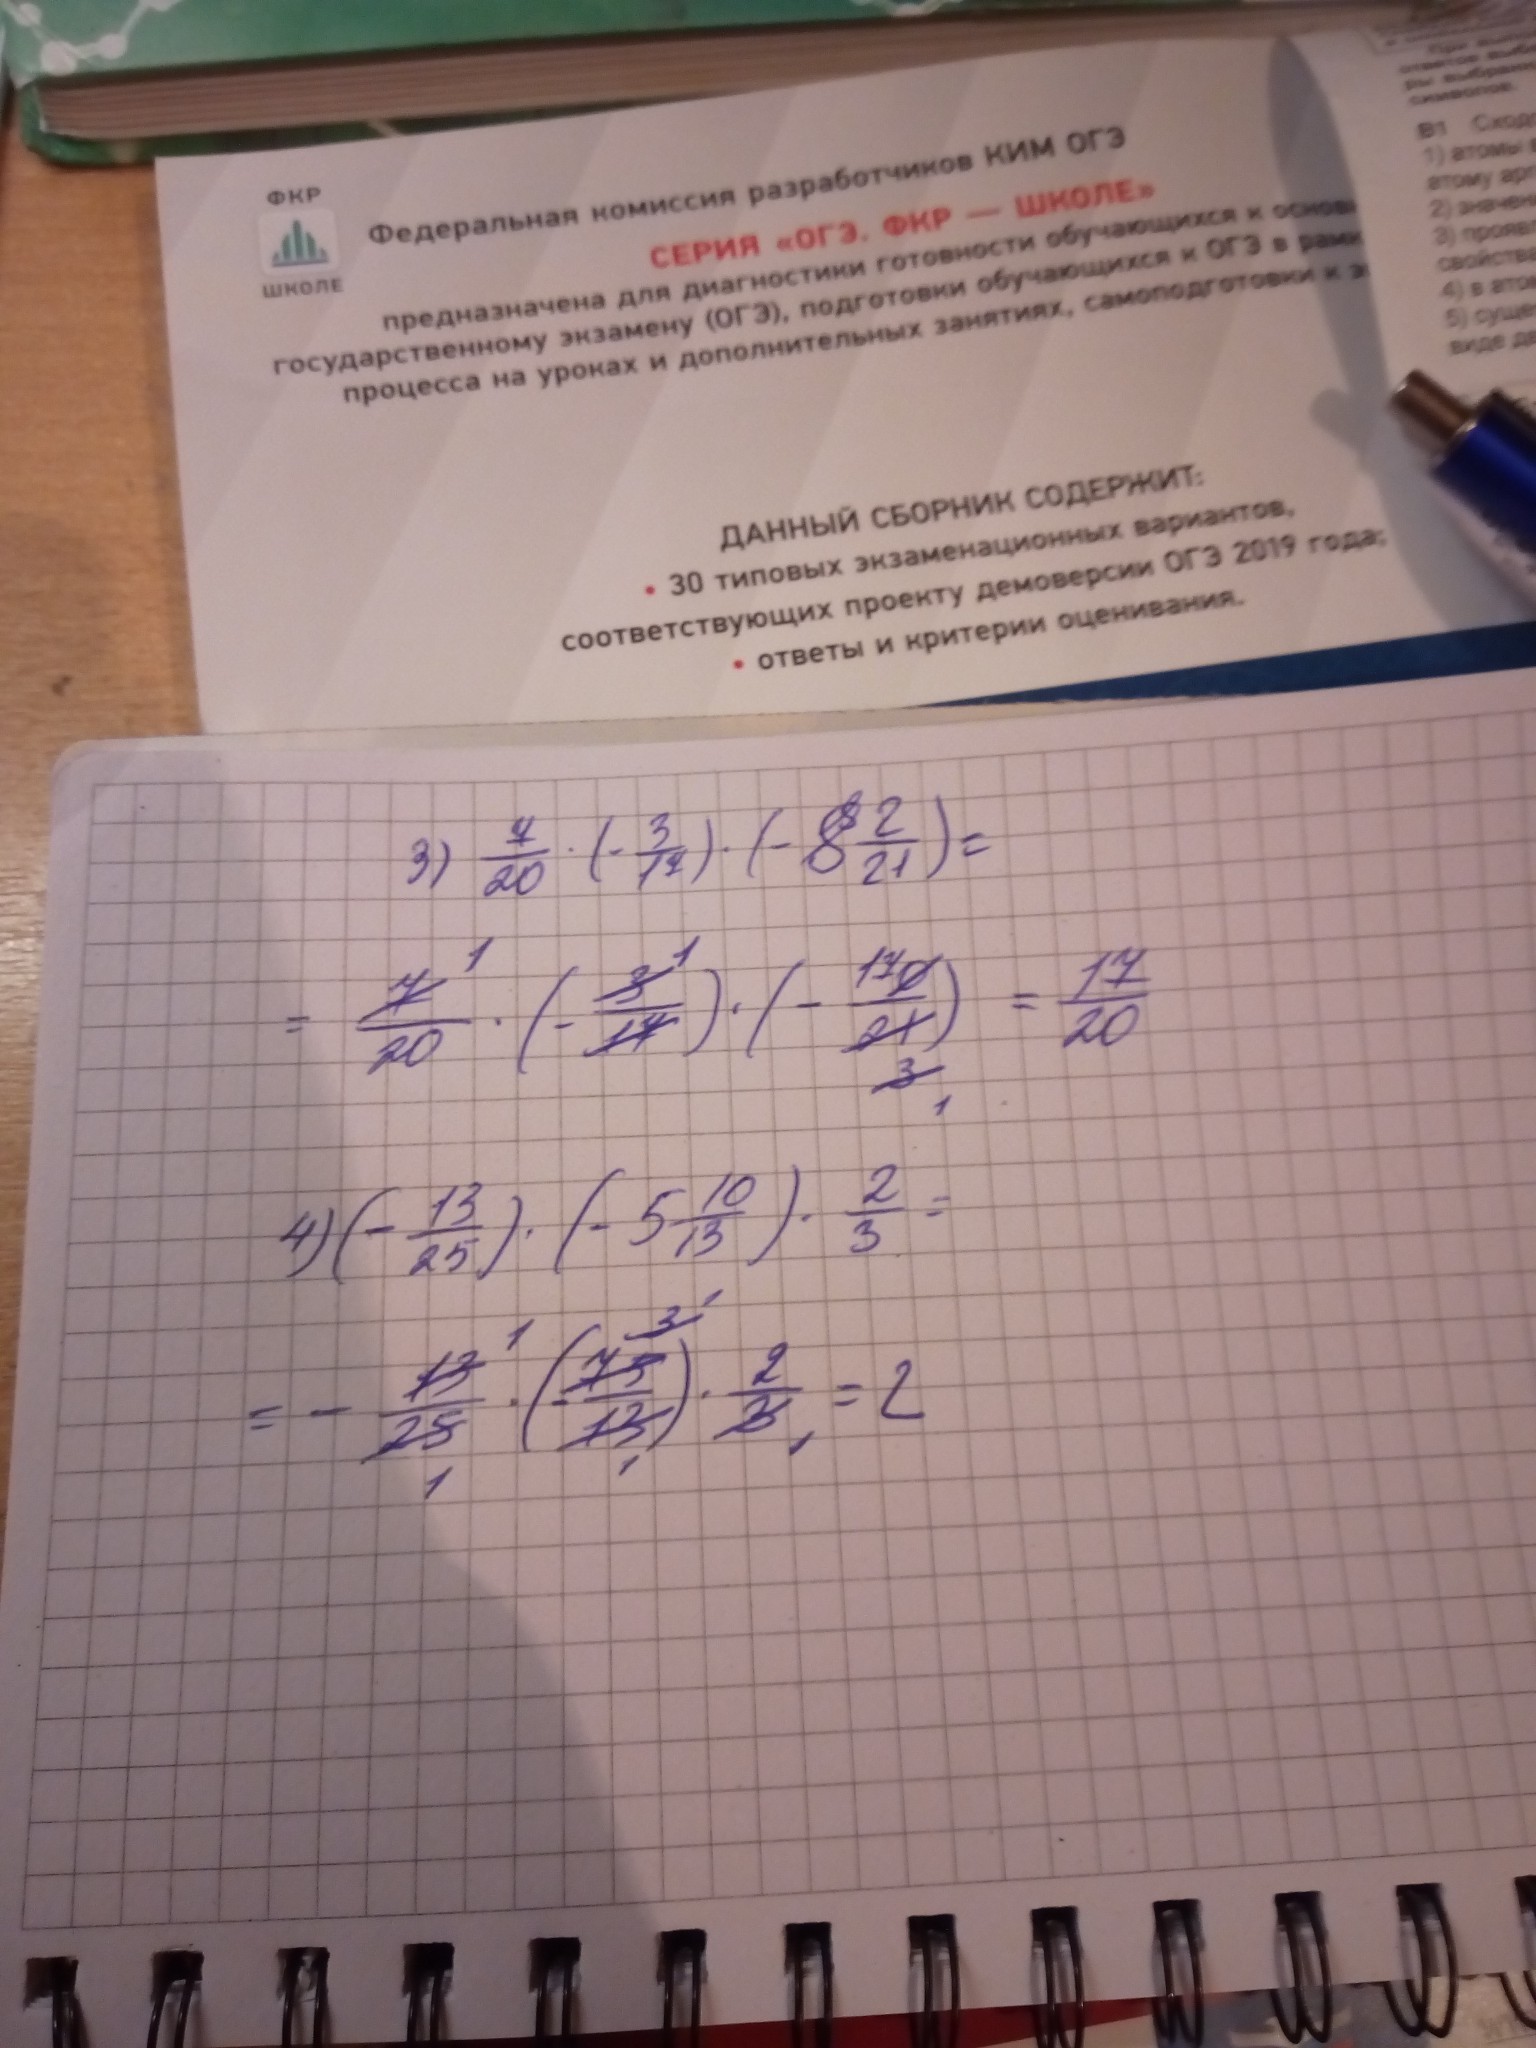 ФКР
ШКОЛЕ
Федеральная комиссия разработчиков КИМ ОГЭ
СЕРИЯ «ОГЭ. ФКР — ШКОЛЕ»
предназначена для диагностики готовности обучающихся к основ
государственному экзамену (ОГЭ), подготовки обучающихся к ОГЭ в рамк
процесса на уроках и дополнительных занятиях, самоподготовки к э
ДАННЫЙ СБОРНИК СОДЕРЖИТ:
• 30 типовых экзаменационных вариантов,
соответствующих проекту демоверсии ОГЭ 2019 года;
• ответы и критерии оценивания.
При выпо
ответов выб
ры выбранн
символов.
В1 Сход
1) атомы
атому арг
2) значен
3) прояв
свойства
4) в ато
5) суще
виде д
3) 7/20 · (- 3/17) · (- 8 2/21) =
= 7/20 1 · (- 3/17 1) · (- 170/21 3 1) = 17/20
4) (- 13/25) · (- 5 10/13) · 2/3 =
= - 13/25 1 1 · (- 75/13 3 1 1) · 2/3 1 = 2